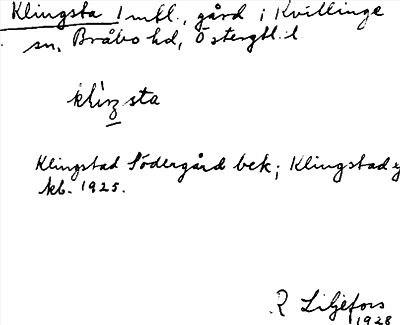 Klingsta 1 mtl., gård i Kvillinge
sn, Bråbo hd, Östergtl. l
klingsta
Klingstad Södergård bek; Klingstad
kb. 1925.
R Liljefors
1928